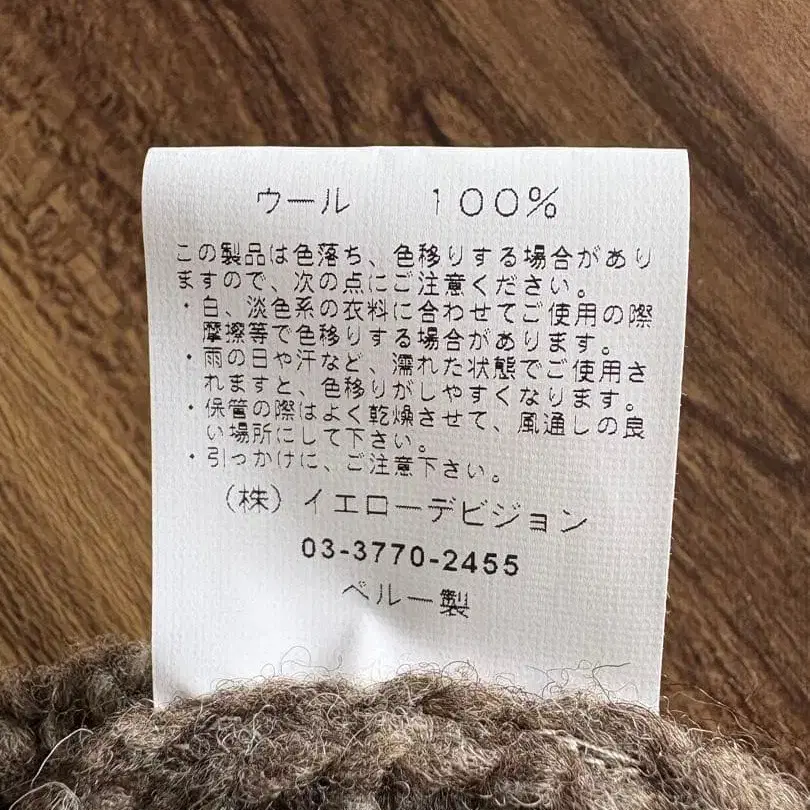 ウール 100%
この製品は色落ち、色移りする場合があり
ますので、次の点にご注意ください。
・白、淡色系の衣料に合わせてご使用の際
摩擦等で色移りする場合があります。
・雨の日や汗など、濡れた状態でご使用さ
れますと、色移りがしやすくなります。
・保管の際はよく乾燥させて、風通しの良
い場所にして下さい。
・引っかけに、ご注意下さい。
(株)イエローデビジョン
03-3770-2455
ペルー製